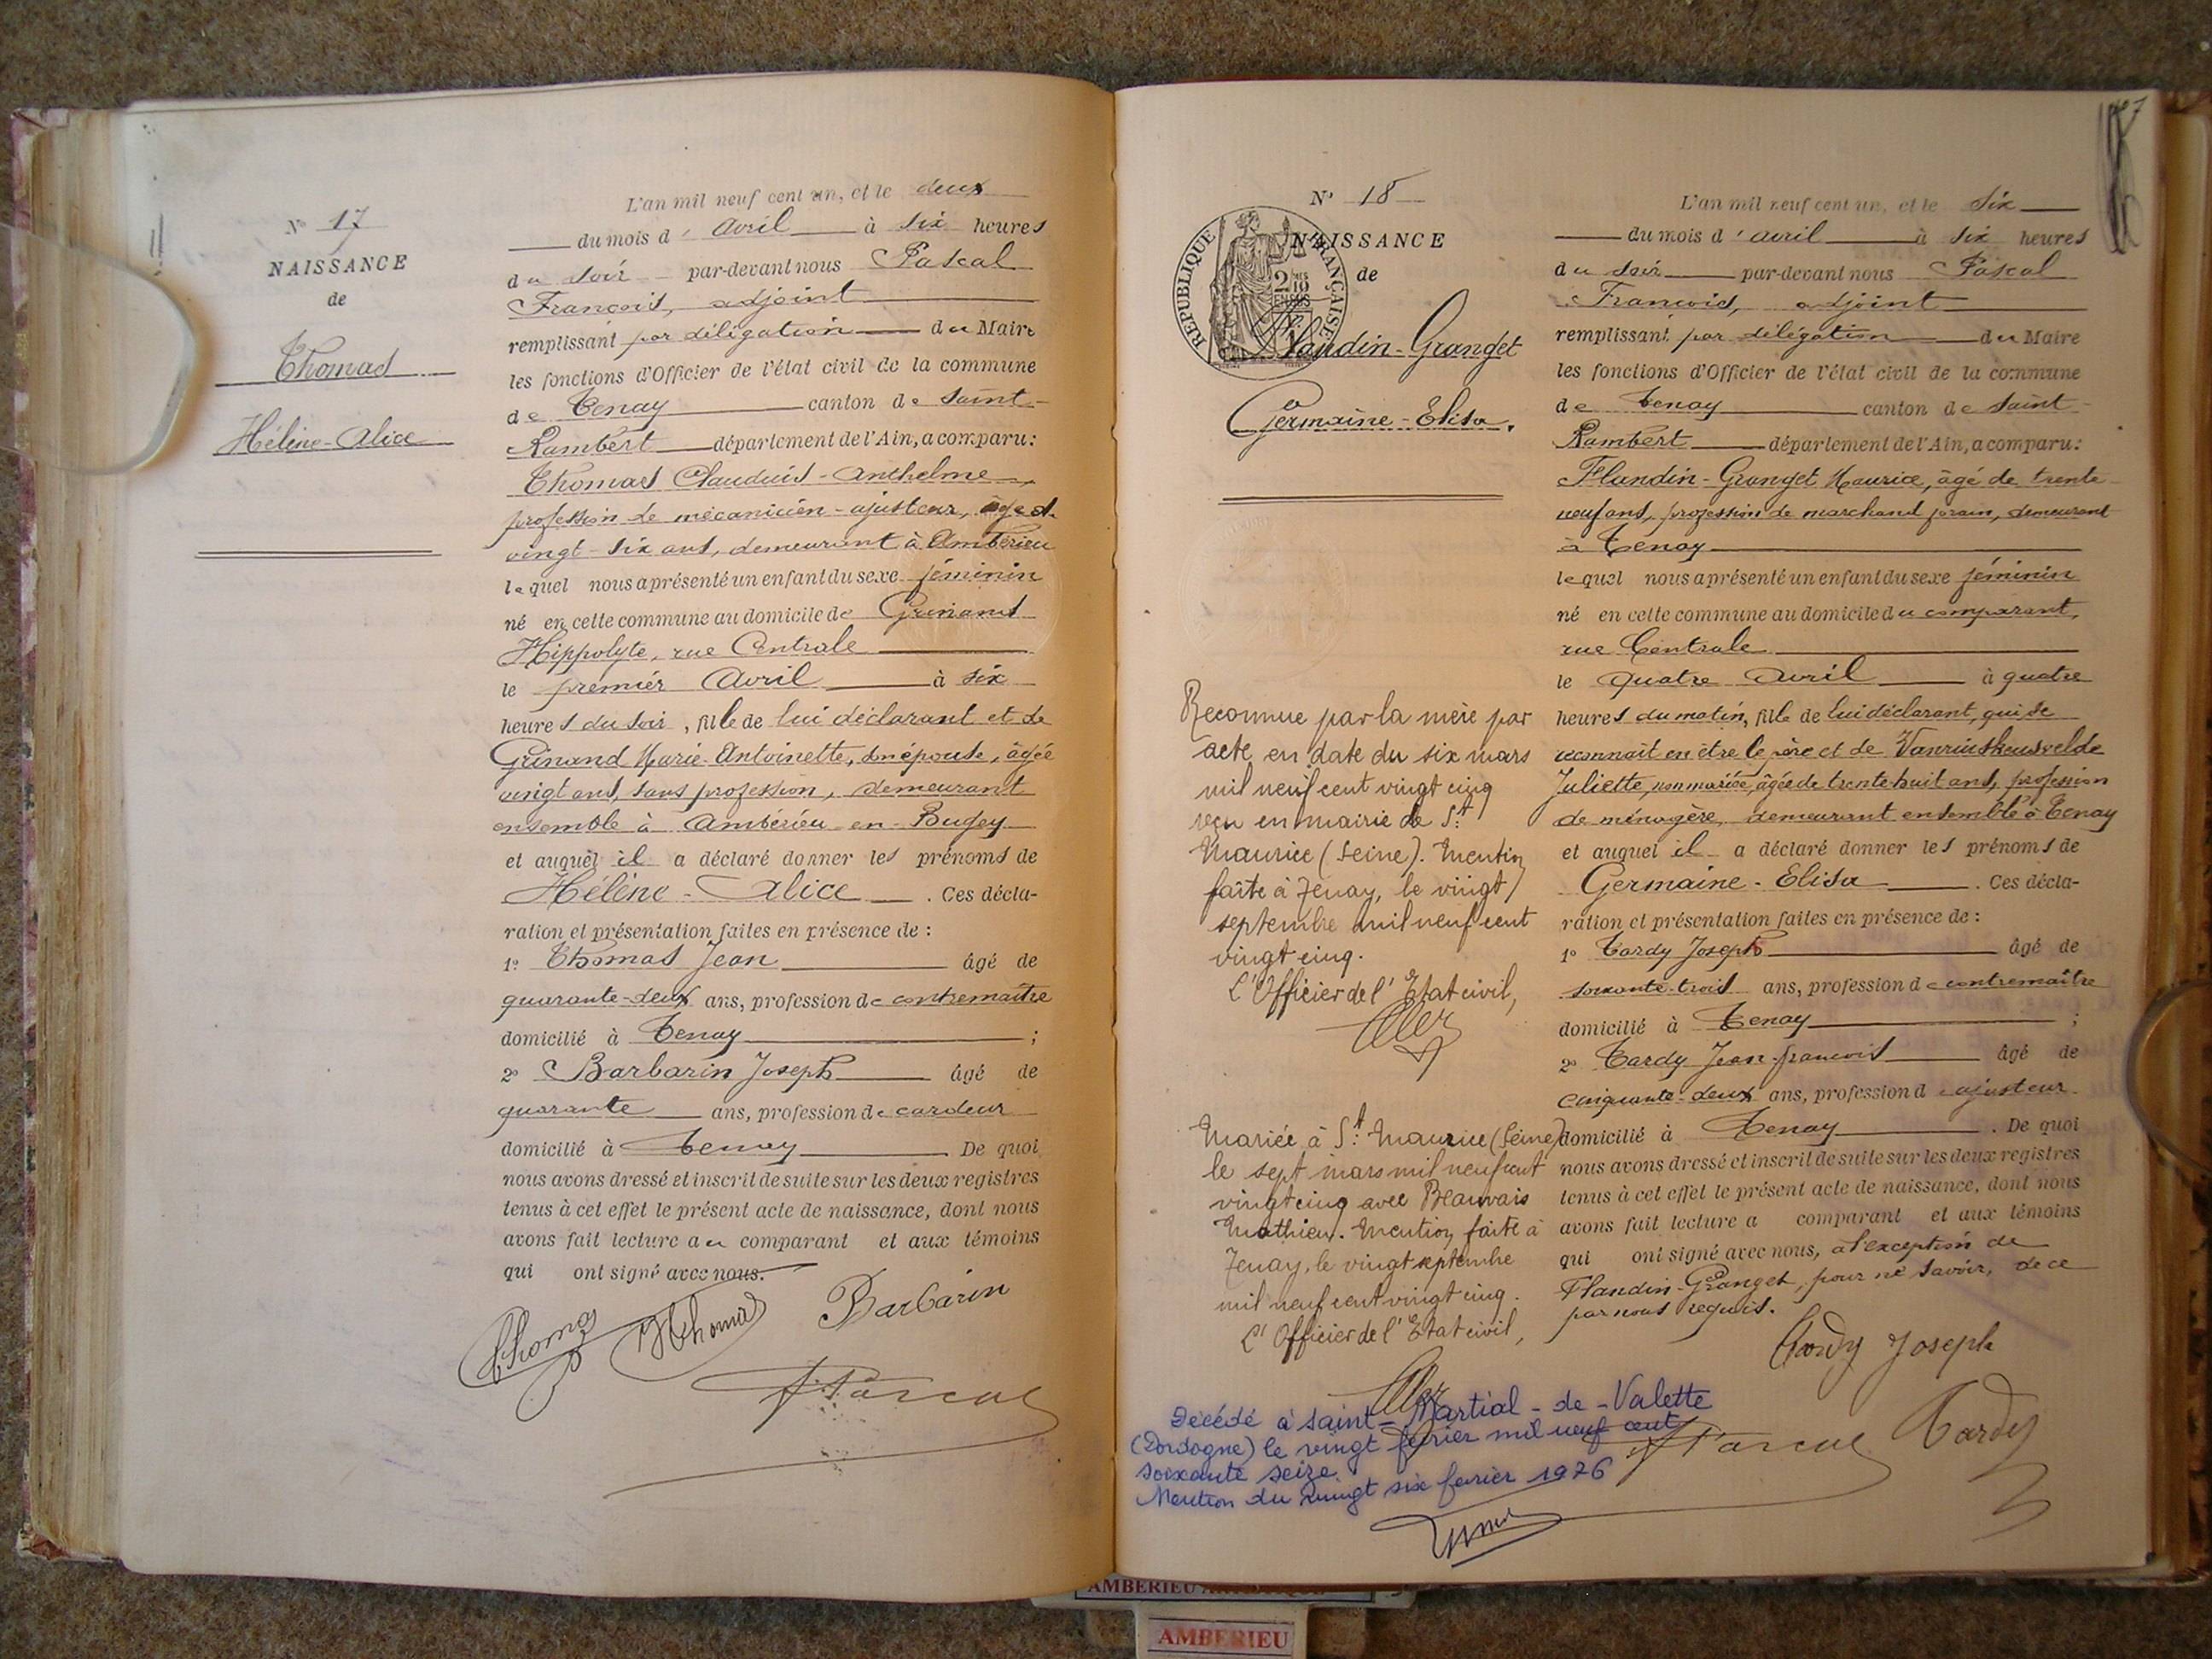 N° 17
NAISSANCE
de
Thomas
Hélène-Alice
L'an mil neuf cent un, et le deux
du mois d'avril à six heures
du soir par-devant nous Pascal
François, adjoint
remplissant par délégation du Maire
les fonctions d'Officier de l'état civil de la commune
de Tenay canton de Saint-
Rambert département de l'Ain, a comparu:
Thomas Claudius-Anthelme,
profession de mécanicien-ajusteur, âgé de
vingt-six ans, demeurant à Ambérieu
lequel nous a présenté un enfant du sexe féminin
né en cette commune au domicile de Grinand
Hippolyte, rue Centrale
le premier Avril à six
heures du soir, fille de lui déclarant et de
Grinand Marie-Antoinette, son épouse, âgée
vingt ans, sans profession, demeurant
ensemble à Ambérieu-en-Bugey
et auquel il a déclaré donner les prénoms de
Hélène-Alice. Ces décla-
ration et présentation faites en présence de :
1° Thomas Jean âgé de
quarante-deux ans, profession de contremaître
domicilié à Tenay ;
2° Barbarin Joseph âgé de
quarante ans, profession de cardeur
domicilié à Tenay. De quoi
nous avons dressé et inscrit de suite sur les deux registres
tenus à cet effet le présent acte de naissance, dont nous
avons fait lecture au comparant et aux témoins
qui ont signé avec nous.
Thomas JThomas Barbarin
F. Pascal
N° 18
NAISSANCE
de
RÉPUBLIQUE FRANÇAISE
2 10 EN SUS
Flandin-Granget
Germaine-Elisa.
L'an mil neuf cent un, et le six
du mois d'avril à six heures
du soir par-devant nous Pascal
François, adjoint
remplissant par délégation du Maire
les fonctions d'Officier de l'état civil de la commune
de Tenay canton de Saint-
Rambert département de l'Ain, a comparu:
Flandin-Granget Maurice, âgé de trente-
neuf ans, profession de marchand forain, demeurant
à Tenay
lequel nous a présenté un enfant du sexe féminin
né en cette commune au domicile du comparant,
rue Centrale
le quatre Avril à quatre
heures du matin, fille de lui déclarant, qui se
reconnaît en être le père et de
Juliette, non mariée, âgée de trente-huit ans, profession
de ménagère, demeurant ensemble à Tenay
et auquel il a déclaré donner les prénoms de
Germaine-Elisa. Ces décla-
ration et présentation faites en présence de :
1° Tardy Joseph âgé de
soixante-trois ans, profession de contremaître
domicilié à Tenay ;
2° Tardy Jean-françois âgé de
cinquante-deux ans, profession d'ajusteur
domicilié à Tenay. De quoi
nous avons dressé et inscrit de suite sur les deux registres
tenus à cet effet le présent acte de naissance, dont nous
avons fait lecture a comparant et aux témoins
qui ont signé avec nous, à l'exception de
Flandin-Granget, pour ne savoir, de ce
par nous requis.
Tardy Joseph
Tardy
F. Pascal
Reconnue par la mère par
acte en date du six mars
mil neuf cent vingt cinq
reçu en mairie de St
Maurice (Seine). Mention
faite à Tenay, le vingt
septembre mil neuf cent
vingt cinq.
L'Officier de l'Etat civil,
Mariée à St Maurice (Seine)
le sept mars mil neuf cent
vingt cinq avec Beauvais
Mathieu. Mention faite à
Tenay, le vingt septembre
mil neuf cent vingt cinq.
L'Officier de l'Etat civil,
Décédé à Saint-Martial-de-Valette
(Dordogne) le vingt février mil neuf cent
soixante seize
Mention du vingt six fevrier 1976
AMBERIEU
AMBERIEU